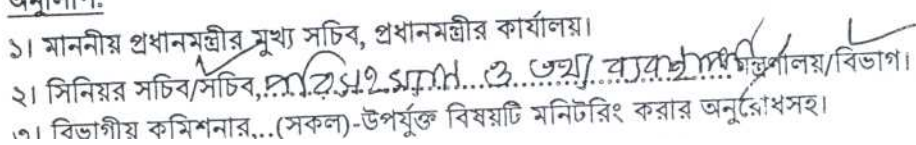 অনুলিপি:
১। মাননীয় প্রধানমন্ত্রীর মুখ্য সচিব, প্রধানমন্ত্রীর কার্যালয়।
২। সিনিয়র সচিব/সচিব, পরিসংখ্যান ও তথ্য ব্যবস্থাপনা মন্ত্রণালয়/বিভাগ।
৩। বিভাগীয় কমিশনার,..(সকল)-উপর্যুক্ত বিষয়টি মনিটরিং করার অনুরোধসহ।